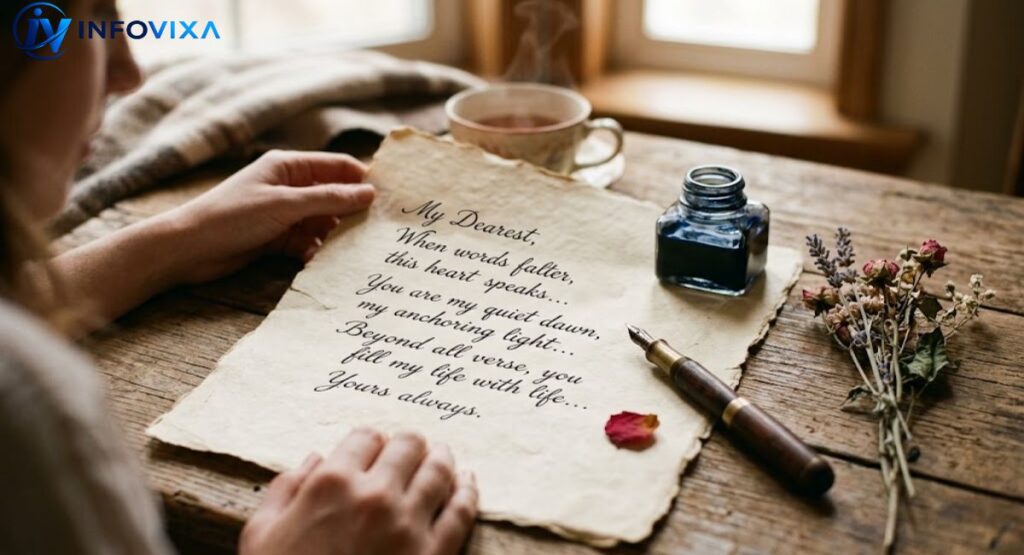 INFOVIXA
My Dearest,
When words falter,
this heart speaks...
You are my quiet dawn,
my anchoring light...
Beyond all verse, you
fill my life with life...
Yours always.